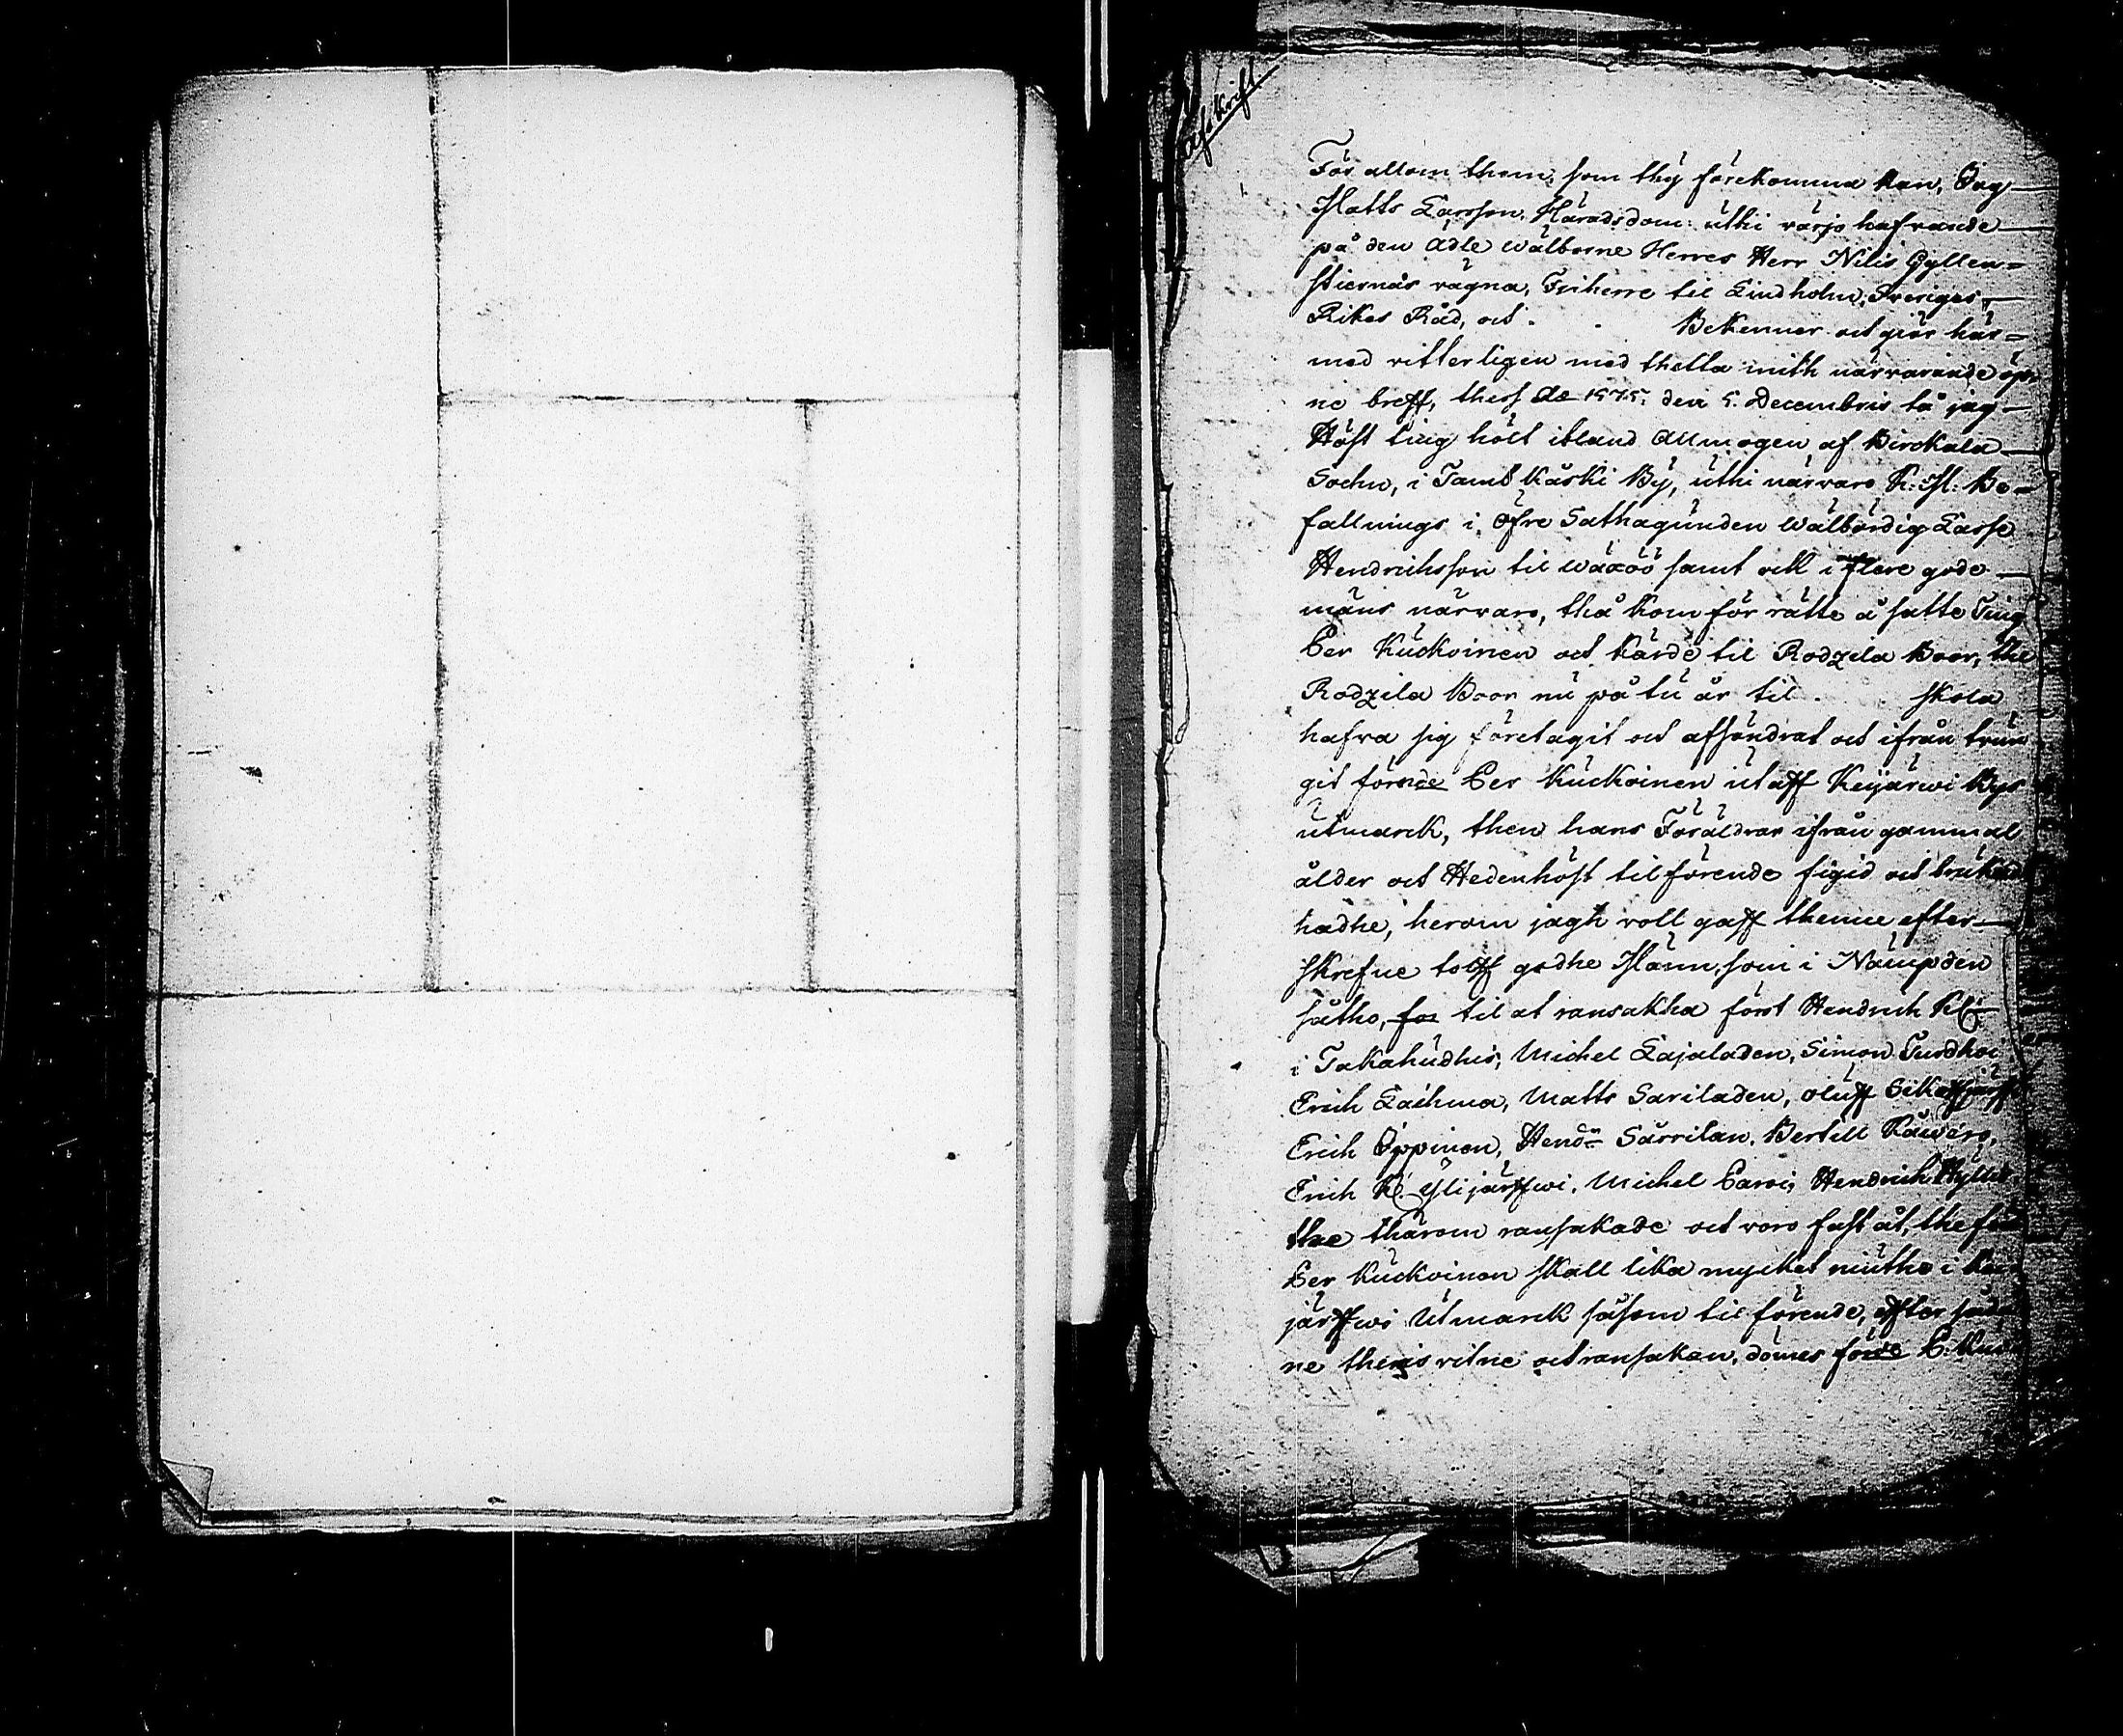 Afskrift
För allom them, som thy förekomma kan, Jag
Matts Larsson, Häradsdom: uthi värjo hafvande
på den Ädle Wälborne Herres Herr Nilis Gyllen=
stiernas vägna, Friherre til Lindholm, Sveriges
Rikes Råd, oct. Bekenner oct giör här=
med vitterligen med thetta mith närvarande öpn
ne breff, thess Ao 1575. den 5. Decembris tå jag
Höst ting hölt ibland Allmogen af Birckala
Sochn, i Tambkåski By, uthi närvaro K: M: Be=
fallnings i Öfre Sathagunden Wälbördig Lasse
Hendrichsson til Wäxöö samt och i flere gode
mäns närvaro, thå kom för rätte å satte Ting
Per Kuckoinen oct kärde til Rodzila Boor, the
Rodzila Boor nu på tu år til . skola
hafva sig företagit oct afhändrat oct ifrån trun
git förnde Per Kuckoinen utaff Keijärwi Bys
utmarck, then hans Föräldrar ifrån gammal
ålder oct Hedenhöst tilförende figid oct brukad
hadhe, herom jagh voll gaff themie efter
skrefne tolff godhe Männ, som i Nämpden
sätho, for til at ransakha först Hendrich Kl:
i Takahudhis, Michel Lajaladen, Simon Turdhoi
Erich Laihma, Matts Sariladen, Oluff Pikasjärff
Erich Oppinen, Hendn Särrilan, Bertill Kawäro,
Erich Kl. Ylijärffwi, Michel Parvi, Hendrich Hyllis
the thärom ransakade oct voro fast åt, the för
Per Kuckoinen skall lika mycket niutha i Kei
järffwi Utmarck såsom til förende, efter sådn
ne theris vitne oct ransakan, dömes förde P: Kuc